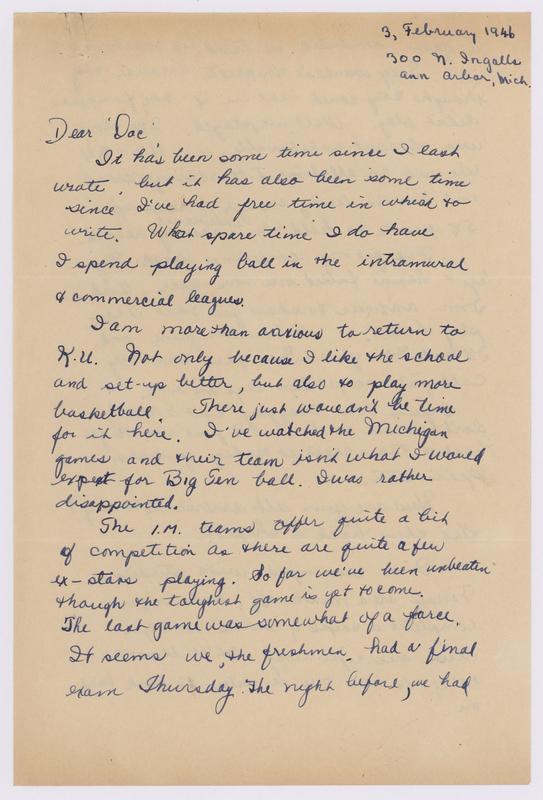 3, February 1946
300 N. Ingalls
Ann Arbor, Mich.
Dear "Doc"
It has been some time since I last
wrote, but it has also been some time
since I've had free time in which to
write. What spare time I do have
I spend playing ball in the intramural
& commercial leagues.
I am more than anxious to return to
K.U. Not only because I like the school
and set-up better, but also to play more
basketball. There just wouldn't be time
for it here. I've watched the Michigan
games and their team isn't what I would
expect for Big Ten ball. I was rather
disappointed.
The I.M. teams offer quite a bit
of competition as there are quite a few
ex-stars playing. So far we've been unbeaten
though the toughest game is yet to come.
The last game was somewhat of a farce.
It seems we, the freshmen, had a final
exam Thursday. The night before, we had